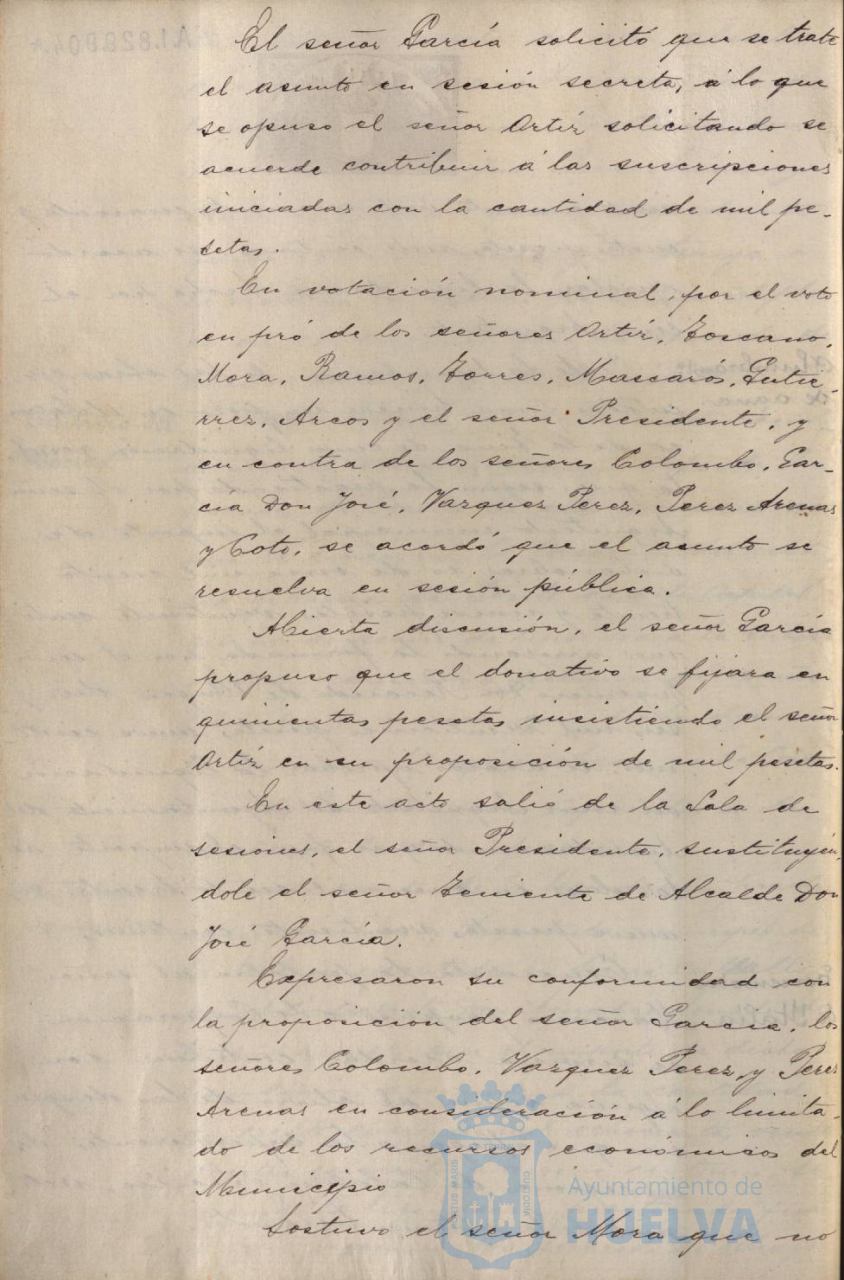 El señor García solicitó que se trate
el asunto en sesión secreta, á lo que
se opuso el señor Ortíz solicitando se
acuerde contribuir á las suscripciones
iniciadas con la cantidad de mil pe-
setas.
En votación nominal, por el voto
en pró de los señores Ortíz, Toscano,
Mora, Ramos, Torres, Mascarós, Gutié-
rrez, Arcos y el señor Presidente, y
en contra de los señores Colombo, Gar-
cía Don José, Vazquez Perez, Perez Arenas
y Coto, se acordó que el asunto se
resuelva en sesión pública.
Abierta discusión, el señor García
propuso que el donativo se fijara en
quinientas pesetas insistiendo el señor
Ortíz en su proposición de mil pesetas.
En este acto salió de la Sala de
sesiones, el señor Presidente, sustituyén-
dole el señor Teniente de Alcalde Don
José García.
Expresaron su conformidad con
la proposición del señor García, los
señores Colombo, Vazquez Perez, y Perez
Arenas en consideración á lo limita-
do de los recursos económicos del
Municipio
Sostuvo el señor Mora que no
Ayuntamiento de
HUELVA